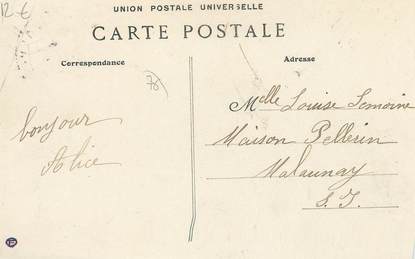 12 €
UNION POSTALE UNIVERSELLE
CARTE POSTALE
Correspondance
Adresse
76
bonjour
Alice
Melle Louise Lemoine
Maison Pellerin
Malaunay
S. I.